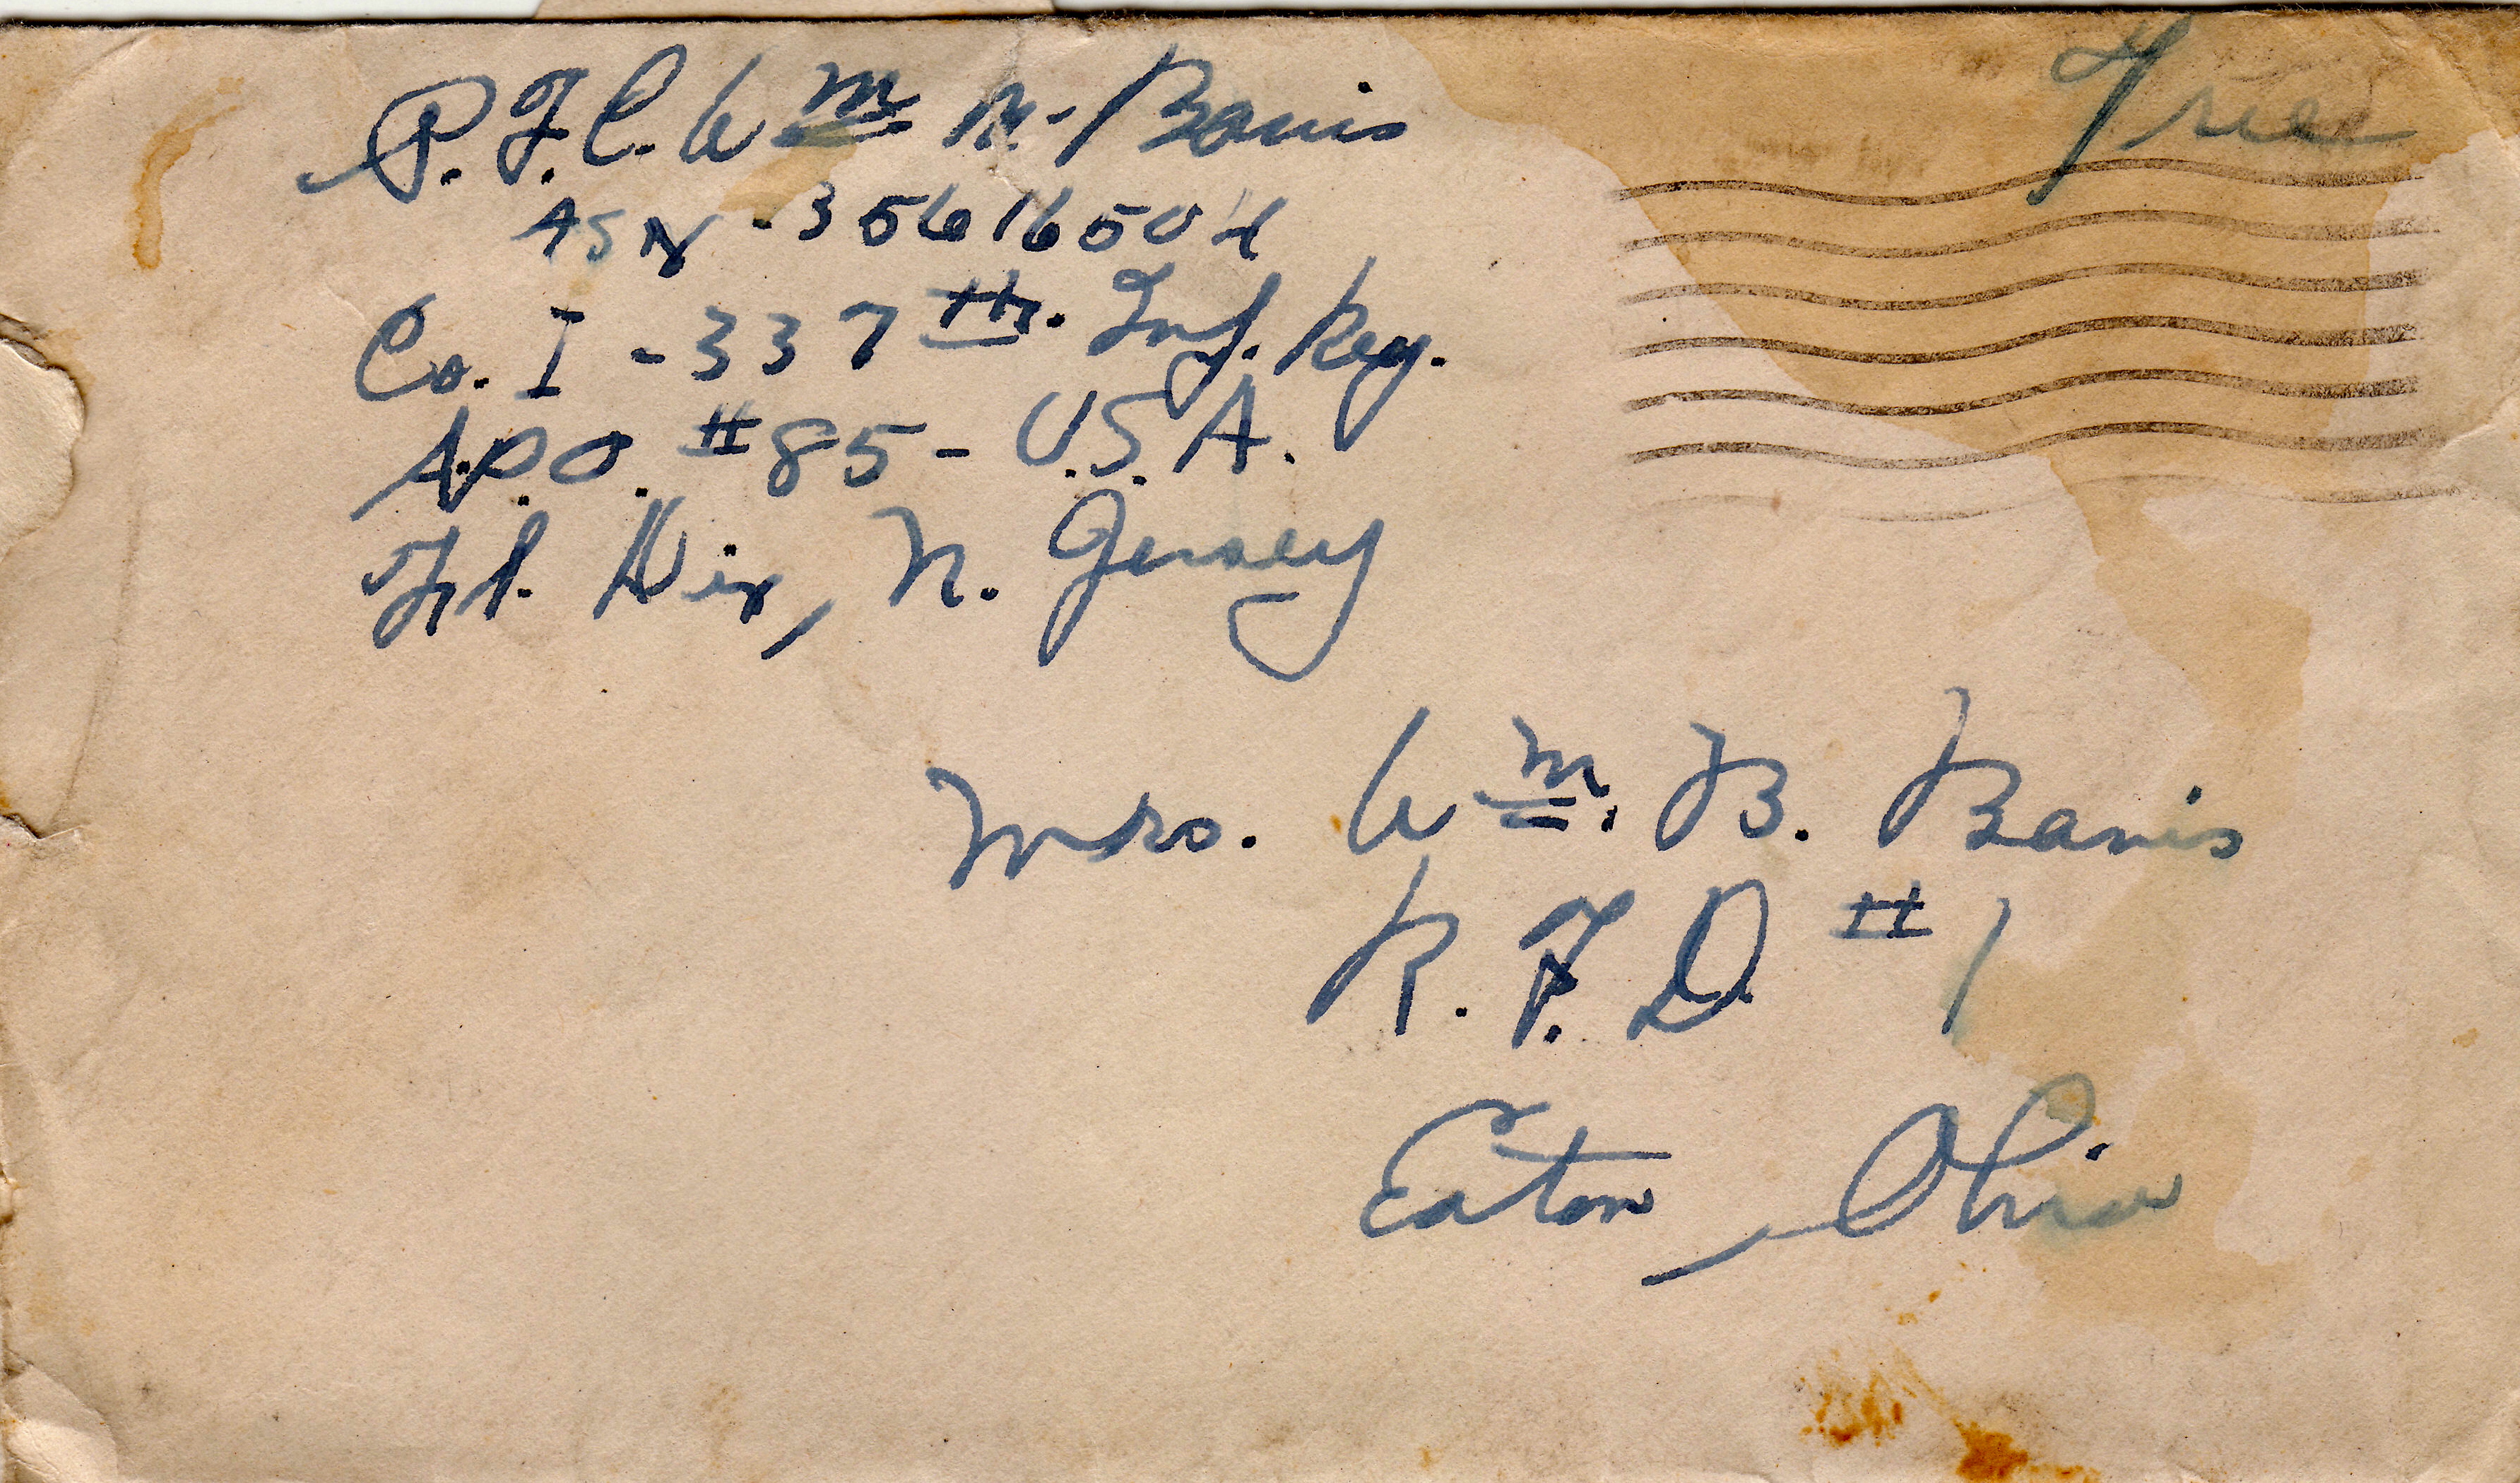 Free
P.F.C. Wm N. Bavis
ASN - 35616504
Co. I - 337th. Inf. Reg.
A.P.O. #85 - U.S.A.
Ft. Dix, N. Jersey
Mrs. Wm. B. Bavis
R. F. D. #1
Eaton, Ohio